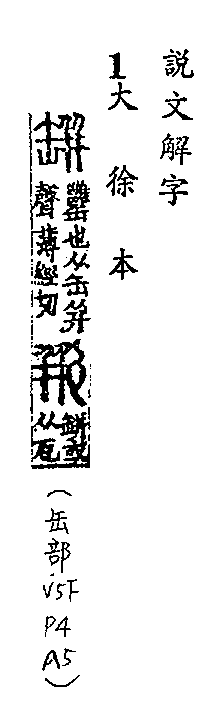 説文解字
1大徐本
缾
罋也从缶并
聲薄經切
瓶
缾或
从瓦
(缶部V5F P4 A5)